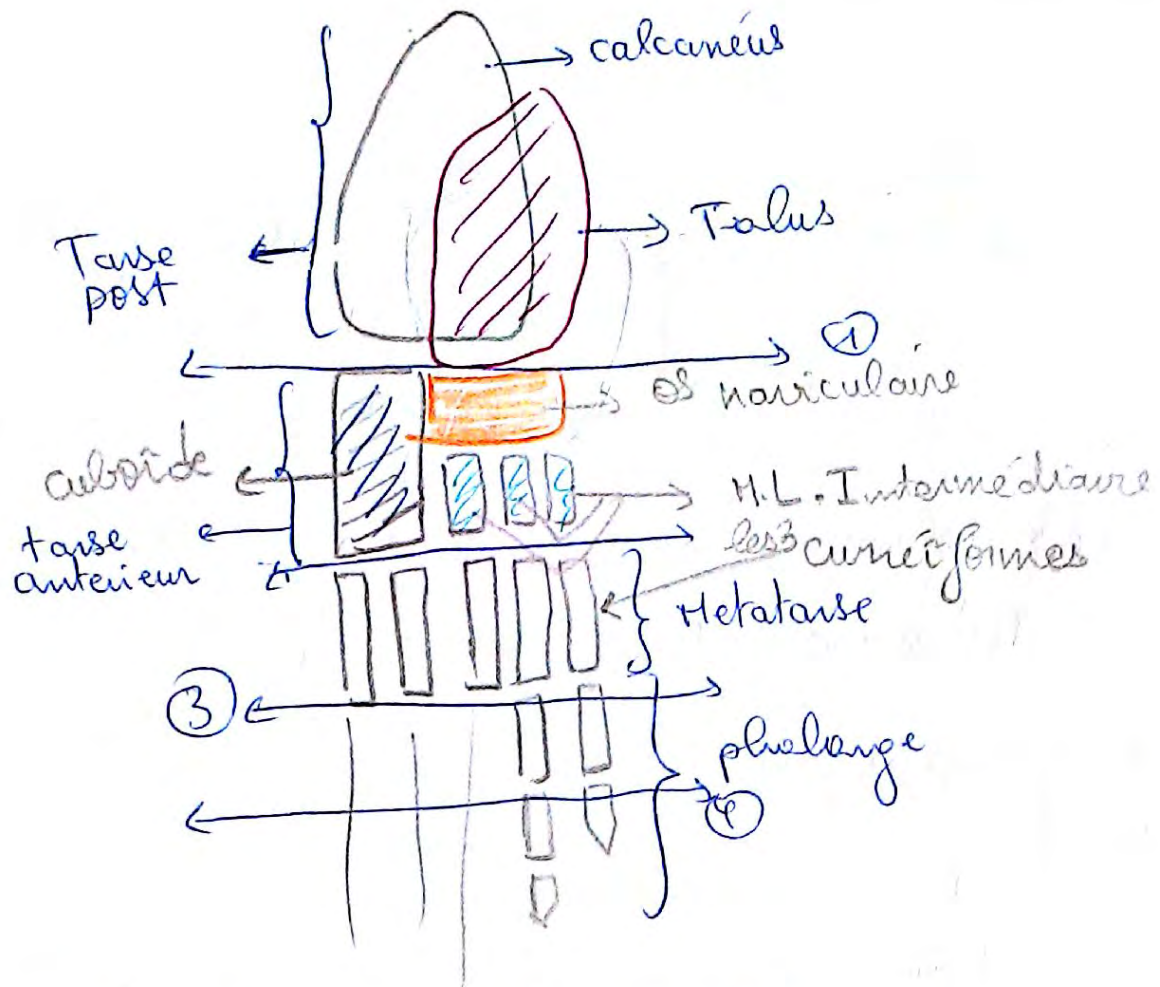 calcanéus
Talus
Tarse
post
1
os naviculaire
cuboïde
M.L. Intermédiaire
les 3 cunéiformes
tarse
antérieur
Metatarse
3
phalange
4